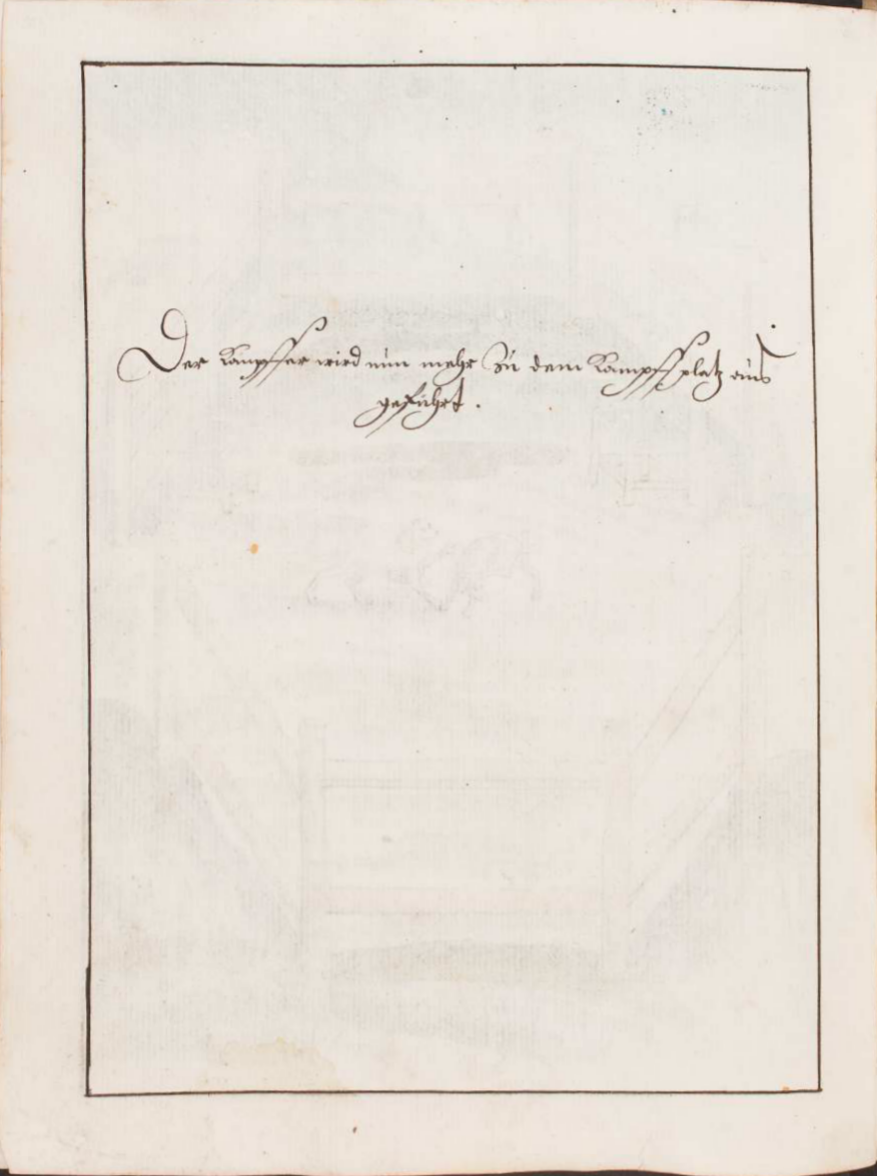 Der Kampffer wird nun mehr zu dem Kampffplatz aus
geführt.